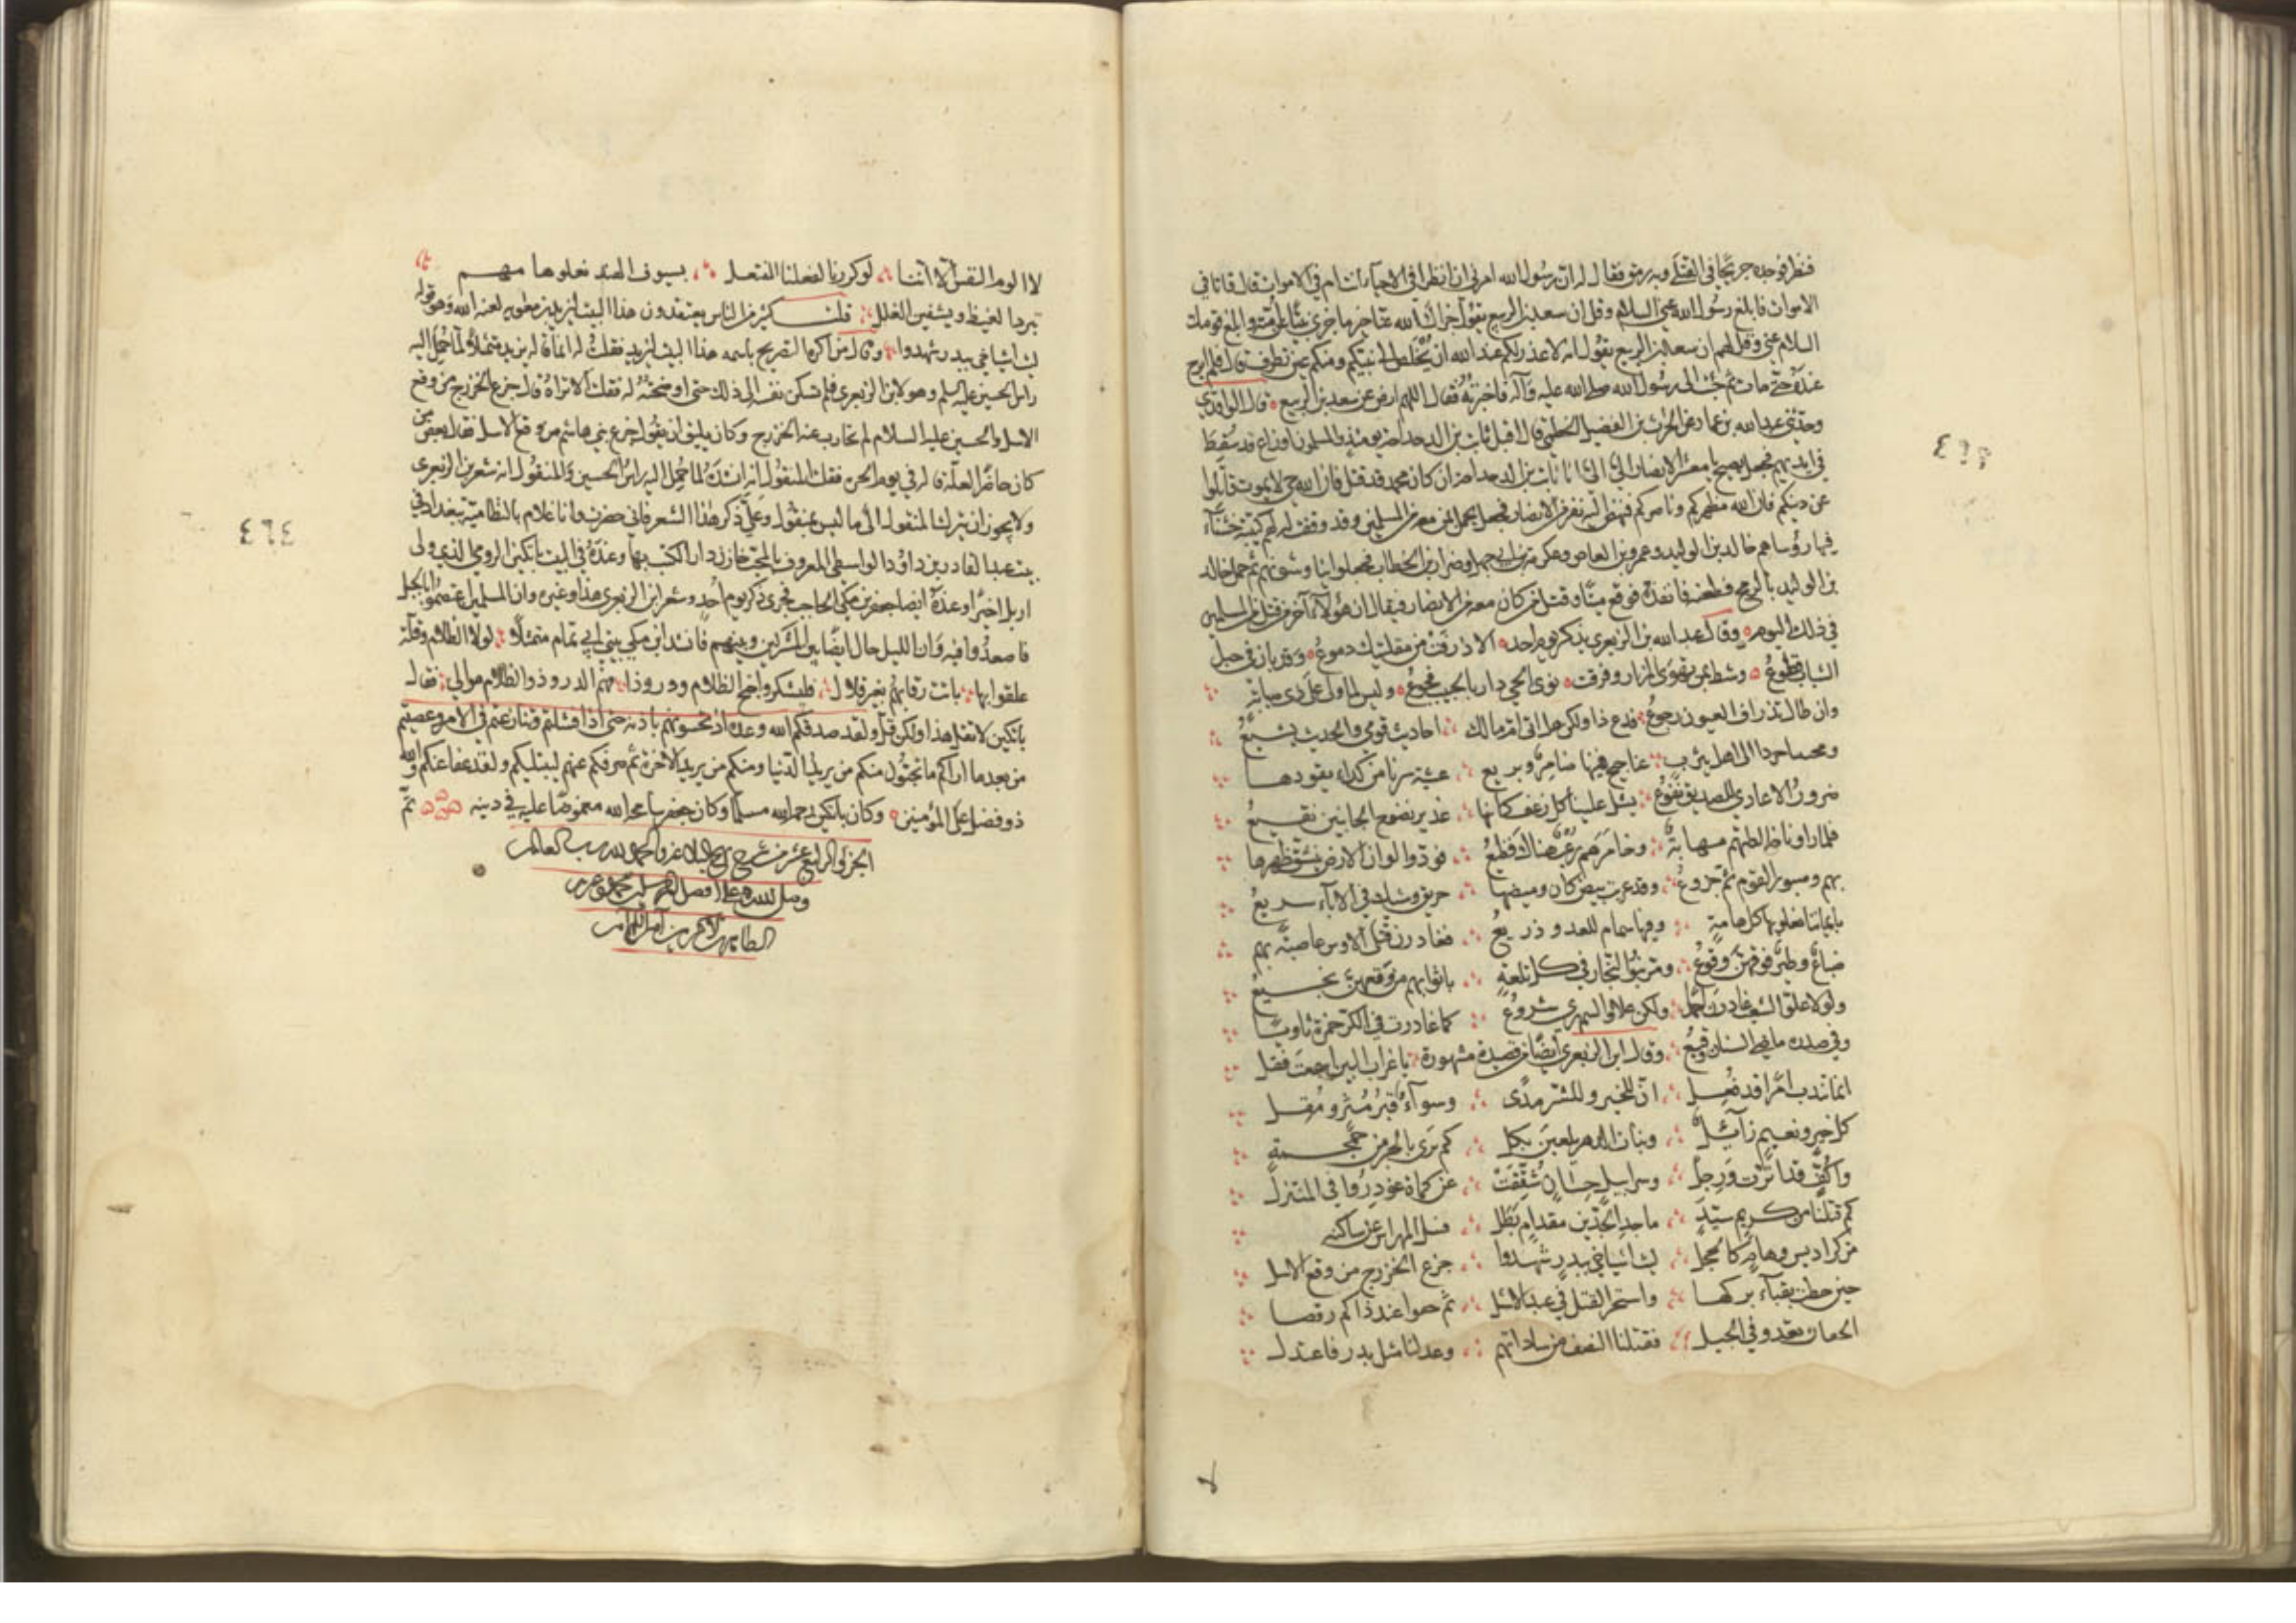 فنظر فوجده جريحا في القتلى وبه رمق فقال له ان رسول الله امرني ان انظر افي الاحياء انت ام في الاموات قال فانا في
الاموات فابلغ رسول الله عني السلام وقل ان سعد بن الربيع يقول جزاك الله عنا خير ما جزى نبيا عن امته وابلغ قومك
السلام عني وقل لهم ان سعد بن الربيع يقول انه لا عذر لكم عند الله ان يخلص الى نبيكم ومنكم عين تطرف قال فلم ابرح
عنده حتى مات ثم جئت الى رسول الله صلى الله عليه وآله فاخبرته فقال اللهم ارض عن سعد بن الربيع قال الواقدي
وحدثني عبد الله بن عمار عن الحرث بن الفضيل الخطمي قال اقبل ثابت بن الدحداحة يومئذ والمسلمون اوزاع قد سقط
في ايديهم فجعل يصيح يا معشر الانصار الي الي انا ثابت بن الدحداحة ان كان محمد قد قتل فان الله حي لا يموت قاتلوا
عن دينكم فان الله مظهركم وناصركم فنهض اليه نفر من الانصار فجعل يحمل بمن معه من المسلمين وقد وقفت لهم كتيبة خشناء
فيها رؤساهم خالد بن الوليد وعمرو بن العاص وعكرمة بن ابي جهل وضرار بن الخطاب فجعلوا يناوشونهم ثم حمل خالد
بن الوليد بالرمح فطعنه فانفذه فوقع ميتا وقتل من كان معه من الانصار فيقال ان هؤلاء آخر من قتل من المسلمين
في ذلك اليوم وقال عبد الله بن الزبعرى يذكر يوم احد الا ذرفت من مقلتيك دموع وقد بان في حبل
الشباب قطوع وشط بمن تهوى المزار وفرقت نوى الحي دار بالحبيب فجوع وليس لما ولى على ذي صبابة
وان طال تذراف العيون رجوع فدع ذا ولكن هل اتى ام مالك احاديث قومي والحديث يشيع
ومجنبنا جردا الى اهل يثرب عناجيج فيها ضامر وبريع عشية سرنا من كداء يقودها
ضرور الاعادي للصديق نفوع يشد علينا كل زغف كانها غدير بضوج الجانبين نقيع
فلما راونا خالطتهم مهابة وخامرهم رعب هناك فظيع فودوا لو ان الارض ينشق ظهرها
بهم وصبور القوم ثم جزوع وقد عريت بيض كان وميضها حريق وشيك في الاباء سريع
بايماننا نعلو بها كل هامة وفيها سمام للعدو ذريع فغادرن قتلى الاوس عاصبة بهم
ضباع وطير فوقهن وقوع ومر بنو النجار في كل تلعة باثوابهم من وقعهن نجيع
ولولا علو الشعب غادرن احمدا ولكن علا والسمهري شروع كما غادرت في الكر حمزة ثاويا
وفي صدره ماضي السنان وقيع وقال ابن الزبعرى ايضا من قصيدة مشهورة يا غراب البين اسمعت فقل
انما تندب امرا قد فعل ان للخير وللشر مدى وسواء قبر مثر ومقل
كل خير ونعيم زائل وبنات الدهر يلعبن بكل كم ترى بالحر من جمجمة
واكف قد اترت ورجل وسرابيل حسان شققت عن كماة غودروا في المنتزل
كم قتلنا من كريم سيد ماجد الجدين مقدام بطل فسل المهراس عن ساكنه
من كراديس وهام كالحجل ليت اشياخي ببدر شهدوا جزع الخزرج من وقع الاسل
حين حطت بقباء بركها واستحر القتل في عبد الاشل ثم خفوا عند ذاكم رقصا
الحفان يعدو في الجبل فقتلنا النصف من ساداتهم وعدلنا ميل بدر فاعتدل
٤٦٣
لا الوم النفس الا اننا لو كررنا لفعلنا المفتعل بسيوف الهند نعلو هامهم
تبرد الغيظ ويشفين الغلل قلت كثير من الناس يعتقدون هذا البيت ليزيد بن معوية لعنه الله وهو قوله
ليت اشياخي ببدر شهدوا وقال من اكره التصريح باسمه هذا البيت ليزيد فقلت له انما قاله يزيد متمثلا لما حمل اليه
راس الحسين عليه السلم وهو لابن الزبعرى فلم تسكن نفسه الى ذلك حتى اوضحته له فقلت الا تراه قال جزع الخزرج من وقع
الاسل والحسين عليه السلام لم تحارب عنه الخزرج وكان يليق ان يقول جزع بني هاشم من وقع الاسل فقال بعض من
كان حاضرا لعله قاله في يوم الحرة فقلت المنقول انه انشده لما حمل اليه راس الحسين والمنقول انه شعر ابن الزبعرى
ولا يجوز ان يترك المنقول الى ما ليس بمنقول وعلى ذكر هذا الشعر فاني حضرت وانا غلام بالنظامية ببغداد في
بيت عبد القادر بن داود الواسطي المعروف بالمحب خازن دار الكتب بها وعنده في البيت باتكين الرومي الذي ولى
اربل اخيرا وعنده ايضا جعفر بن مكي الحاجب فجرى ذكر يوم احد وشعر ابن الزبعرى هذا وغيره وان المسلمين اعتصموا بالجبل
فاصعدوا فيه وان الليل حال ايضا بين المشركين وبينهم فانشد ابن مكي بيتي ابي تمام متمثلا لولا الظلام وقلة
علقوا بها باتت رقابهم بغير قلال فليشكروا جنح الظلام ودروذا فهم لدروذ والظلام موالي فقال
باتكين لا تقل هذا ولكن قل ولقد صدقكم الله وعده اذ تحسونهم باذنه حتى اذا فشلتم وتنازعتم في الامر وعصيتم
من بعد ما اراكم ما تحبون منكم من يريد الدنيا ومنكم من يريد الآخرة ثم صرفكم عنهم ليبتليكم ولقد عفا عنكم والله
ذو فضل على المؤمنين وكان باتكين رحمه الله مسلما وكان جعفر سامحه الله مغموصا عليه في دينه تم
الجزء الرابع عشر من شرح نهج البلاغة والحمد لله رب العالمين
وصلى الله على افضل المرسلين محمد وعترته
الطاهرين الاكرمين آمين
٤٦٤